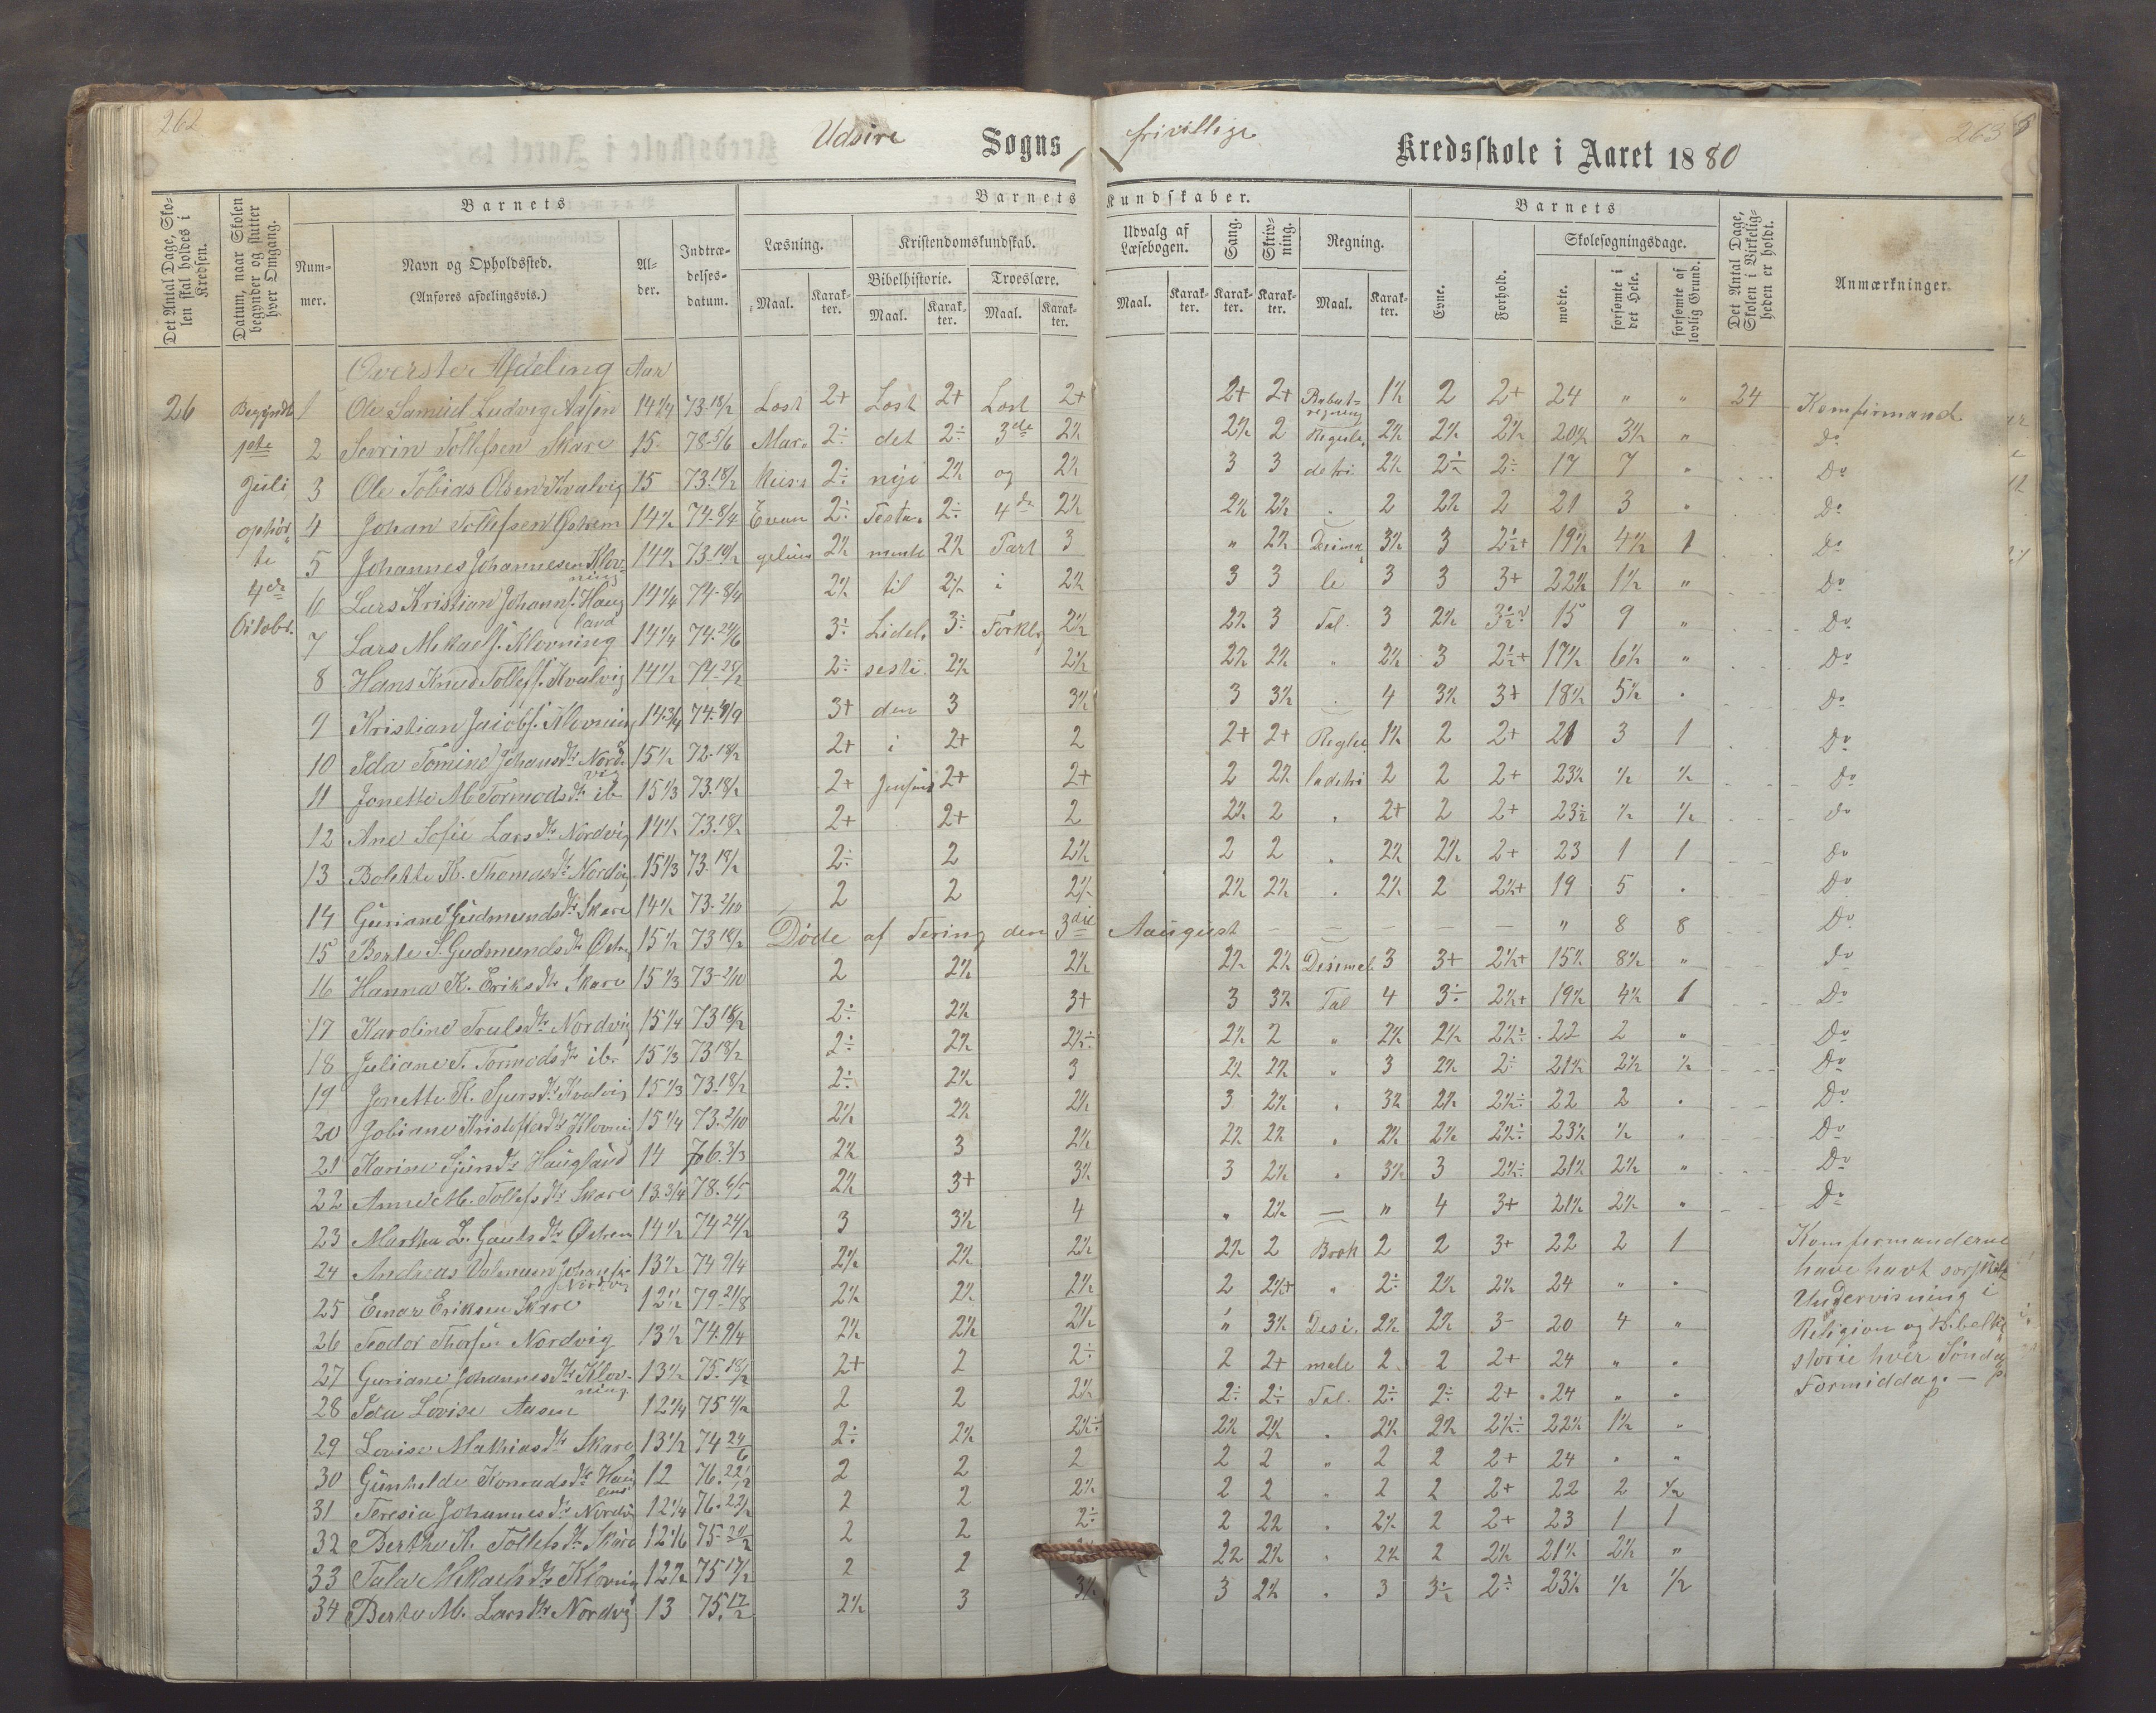 262
Udsire Sogns frivillige Kredsskole i Aaret 1880
263
Det Antal Dage, Skolen skal holdes i Kredsen.
Datum, naar Skolen begynder og slutter hver Omgang.
Barnets
Nummer.
Navn og Opholdssted.
(Anføres afdelingsvis.)
Alder.
Indtrædelses-datum.
Barnets Kundskaber.
Læsning.
Maal. Karakter.
Kristendomskundskab.
Bibelhistorie.
Maal. Karakter.
Troeslære.
Maal. Karakter.
Udvalg af Læsebogen.
Maal. Karakter.
Sang.
Karakter.
Skrivning.
Karakter.
Regning.
Maal. Karakter.
Barnets
Evne.
Forhold.
Skolesøgningsdage.
mødte.
forsømte i det Hele.
forsømte af lovlig Grund.
Det Antal Dage, Skolen i Virkeligheden er holdt.
Anmærkninger.
Øverste Afdeling Aar
26 Begyndte 1 Ole Samuel Ludvig Aasen 14 1/4 73-18/2 Læst 2+ Læst 2+ Læst 2+ 2+ 2+ Rabatregning 1½ 2 2+ 24 " " 24 Komfirmand
1ste 2 Sevrin Tollefsen Skare 15 78-5/6 Mar- 2÷ det 2÷ 3de 2½ 2½ 2 Regula 2½ 2½ 2½ 20½ 3½ " Do
Juli 3 Ole Tobias Olsen Kvalvig 15 73-18/2 kus's 2÷ nye 2½ og 2½ 3 3 detri 2½ 2½ 2÷ 17 7 " Do
ophør- 4 Johan Tollefsen Østrem 14½ 74-8/4 Evan 2÷ Testa- 2÷ 4de 2½ 2½ 2½ " 2 2½ 2 21 3 " Do
te 5 Johannes Johannesen Klovning 14½ 73-18/2 gelium 2½ mente 2½ Part 3 " 2½ Desima 3½ 3 2½+ 19½ 4½ 1 Do
4de 6 Lars Kristian Johanns. Haugland 14 1/4 74-8/4 2½ til 2½ i 2½ 3 3 le 3 3 3+ 22½ 1½ " Do
Octobr. 7 Lars Mikaels. Klovning 14 1/4 74-24/6 3÷ Lidel- 3÷ Forkl. 2½ 2½ 3 Tal. 3 2½ 15 9 " Do
8 Hans Knud Tollefs. Kvalvig 14½ 2÷ 2½ 2½ 2½ 2½ " 2½ 3 2½+ 17½ 6½ " Do
9 Kristian Jacobs. Klovning 14 3/4 3+ den 3 3½ 3 3½ " 4 3½ 3+ 18½ 5½ " Do
10 Ida Tomine Johans Dtr Nordvig 15½ 72-18/2 2+ i 2+ 2 2+ 2+ Regu 1½ 2 2+ 21 3 1 Do
11 Jonette M Tormods Dtr ib 15 1/3 73-18/2 2+ 2+ 2+ 2 2½ ladetri 2 2 2+ 23½ ½ ½ Do
12 Ane Sofie Lars Dtr Nordvig 14½ 73-18/2 2+ 2+ 2 2½ 2 " 2+ 2 2+ 23½ ½ ½ Do
13 Bolette K. Thomas Dtr Nordvig 15 1/3 73-18/2 2÷ 2 2½ 2 2 " 2½ 2½ 2+ 23 1 1 Do
14 Guriane Gudmunds Dtr Skare 14½ 73-2/10 2 2 2½ 2½ 2½ " 2½ 2 2½+ 19 5 " Do
15 Berte S. Gudmunds Dtr Østre 15½ 73 18/2 Døde af Tæring den 3die Aaugust — — — — — " 8 8 Do
16 Hanna K. Eriks Dtr Skare 15 1/3 73-2/10 2 2½ 2½ 2½ 2½ Desimal 3 3+ 2½+ 15½ 8½ " Do
17 Karoline Truls Dtr Nordvig 15 1/4 73 18/2 2÷ 2½ 3+ 3 3½ Tal 4 3÷ 2½+ 19½ 4½ 1 Do
18 Juliane T. Tormods Dtr ib. 15 1/3 73 18/2 2÷ 2½ 2½÷ 2½ 2 " 2½ 2½ 2½÷ 22 2 " Do
19 Jonette K. Sjurs Dtr Kvalvig 15 1/3 73-18/2 2÷ 2½ 3 2½ 2½ " 3 2½ 2÷ 21½ 2½ ½ Do
20 Jobiane Kristoffers Dtr Klovning 15 1/4 73-2/10 2½ 2½ 2½ 3 2½ " 3½ 2½ 2½÷ 22 2 " Do
21 Karine Sjurs Dtr Haugland 14 76-3/3 2½ 3 2½ 2½ 2½ " 2½ 2½ 2½÷ 23½ ½ " Do
22 Anne M. Tollefs Dtr Skare 13 3/4 2½ 3+ 3½ 3 2½ " 3½ 3 2½÷ 21½ 2½ " Do
23 Martha L. Gauts Dtr Østrem 14½ 74 24/2 3 3½ 4 " 2½ — " 4 3+ 21½ 2½ " Do
24 Andreas Valemun Johans. Nordvig 13½ 74 9/4 2½ 2½ 2½ 2½ 2 Brøk 2 2 3+ 22 2 1
25 Einar Eriksen Skare 12½ 79-21/8 2½ 2½ 2½ 2 2½+ " 2÷ 2½ 2½ 24 " "
26 Teodor Thorsen Nordvig 13½ 74-9/4 2½ 2½ 2½ " 3½ Desi- 2½ 2½ 3- 20 4 "
27 Guriane Johannes Dtr Klovning 13½ 75-18/2 2+ 2 2÷ 2 2+ male 2 2 2+ 24 " "
28 Ida Lovise Aasen 12 1/4 2 2 2½ 2÷ 2÷ Tal. 2÷ 2÷ 2+ 24 " "
29 Lovise Mathias Dtr Skare 13½ 74 24/6 2÷ 2½ 2½÷ 2½ 2½ " 2½ 2½ 2½÷ 22½ 1½ "
30 Gunhilde Konrads Dtr Haugland 12 76-22/2 2 2 2 2 2 " 2 2 2+ 24 " "
31 Teresia Johannes Dtr Nordvig 12 1/4 76-22/2 2 2 2½ 2 2 " 2 2 2+ 22 2 ½
32 Berthe K. Tollefs Dtr Skare 12 1/6 2 2 2÷ 2 2½ " 2½ 2 2+ 23 1 1
33 Tala Mikaels Dtr Klovning 12½ 75 17/2 2 2 2½ 2½ " 2½ 2 2½ 21½ 2½ "
34 Berte M. Lars Dtr Nordvig 13 75-17/2 2½ 3 3½ 3 2½ " 3 3½ 2÷ 23½ ½ ½
Komfirmanderne
have havt særskilt
Undervisning i
Religion og Bibelhi-
storie hver Søndag
Formiddag. —